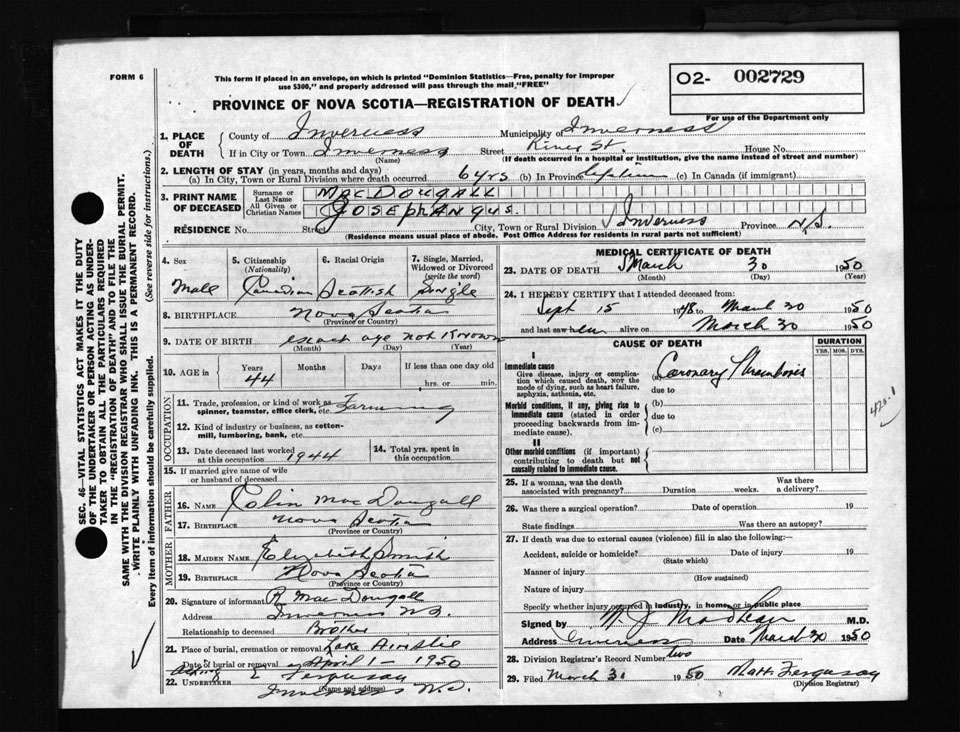 FORM 6
This form if placed in an envelope, on which is printed "Dominion Statistics—Free, penalty for improper
use $300," and properly addressed will pass through the mail "FREE"
O2- 002729
For use of the Department only
PROVINCE OF NOVA SCOTIA—REGISTRATION OF DEATH
SEC. 46—VITAL STATISTICS ACT MAKES IT THE DUTY
OF THE UNDERTAKER OR PERSON ACTING AS UNDER-
TAKER TO OBTAIN ALL THE PARTICULARS REQUIRED
IN THE "REGISTRATION OF DEATH" AND TO FILE THE
SAME WITH THE DIVISION REGISTRAR WHO SHALL ISSUE THE BURIAL PERMIT.
WRITE PLAINLY WITH UNFADING INK. THIS IS A PERMANENT RECORD.
Every item of information should be carefully supplied. (See reverse side for instructions.)
1. PLACE OF DEATH
County of Inverness Municipality of Inverness
If in City or Town Inverness Street River St. House No.
(Name) (If death occurred in a hospital or institution, give the name instead of street and number)
2. LENGTH OF STAY (in years, months and days)
(a) In City, Town or Rural Division where death occurred 6 yrs (b) In Province lifetime (c) In Canada (if immigrant)
3. PRINT NAME OF DECEASED
Surname or Last Name MacDougall
All Given or Christian Names Joseph Angus.
RESIDENCE No. Street City, Town or Rural Division Inverness Province N.S.
(Residence means usual place of abode. Post Office Address for residents in rural parts not sufficient)
4. Sex Male
5. Citizenship (Nationality) Canadian
6. Racial Origin Scottish
7. Single, Married, Widowed or Divorced (write the word) Single
8. BIRTHPLACE Nova Scotia
(Province or Country)
9. DATE OF BIRTH exact age not Known
(Month) (Day) (Year)
10. AGE in Years 44 Months Days If less than one day old
hrs. or min.
OCCUPATION
11. Trade, profession, or kind of work as
spinner, teamster, office clerk, etc. Farming
12. Kind of industry or business, as cotton-
mill, lumbering, bank, etc.
13. Date deceased last worked
at this occupation 1944
14. Total yrs. spent in
this occupation
15. If married give name of wife
or husband of deceased
FATHER
16. Name Colin MacDougall
17. Birthplace Nova Scotia
(Province or Country)
MOTHER
18. Maiden Name Elizabeth Smith
19. Birthplace Nova Scotia
(Province or Country)
20. Signature of informant R. MacDougall
Address Inverness N.S.
Relationship to deceased Brother
21. Place of burial, cremation or removal Lake Ainslie
Date of burial or removal April 1 - 1950
Acting
22. Undertaker E Ferguson
(Name and address)
Inverness N.S.
MEDICAL CERTIFICATE OF DEATH
23. DATE OF DEATH March 30 1950
(Month) (Day) (Year)
24. I HEREBY CERTIFY that I attended deceased from:
Sept 15 1948 to March 30 1950
and last saw him alive on March 30 1950
CAUSE OF DEATH
DURATION
YRS. MOS. DYS.
I
Immediate cause
Give disease, injury or complica-
tion which caused death, NOT the
mode of dying, such as heart failure,
asphyxia, asthenia, etc.
(a) Coronary Thrombosis
due to
Morbid conditions, if any, giving rise to
immediate cause (stated in order
proceeding backwards from im-
mediate cause).
(b)
due to
(c)
II
Other morbid conditions (if important)
contributing to death but not
causally related to immediate cause.
420.1
25. If a woman, was the death
associated with pregnancy? Duration weeks. Was there
a delivery?
26. Was there a surgical operation? Date of operation 19
State findings Was there an autopsy?
27. If death was due to external causes (violence) fill in also the following:—
Accident, suicide or homicide? Date of injury 19
(State which)
Manner of injury
(How sustained)
Nature of injury
Specify whether injury occurred in industry, in home, or in public place
Signed by M.D.
Address Inverness Date March 30 1950
28. Division Registrar's Record Number two
29. Filed March 31 1950 Ferguson
(Division Registrar)